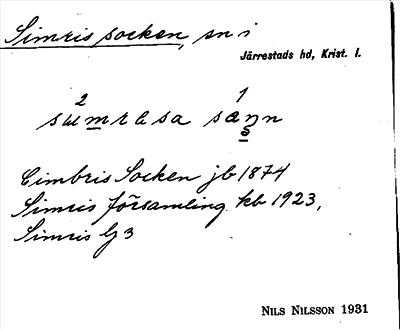 Simris socken, sn i
Järrestads hd, Krist. l.
2 1
Cimbris Socken jb 1874
Simris församling kb 1923,
Simris Gj 3
NILS NILSSON 1931